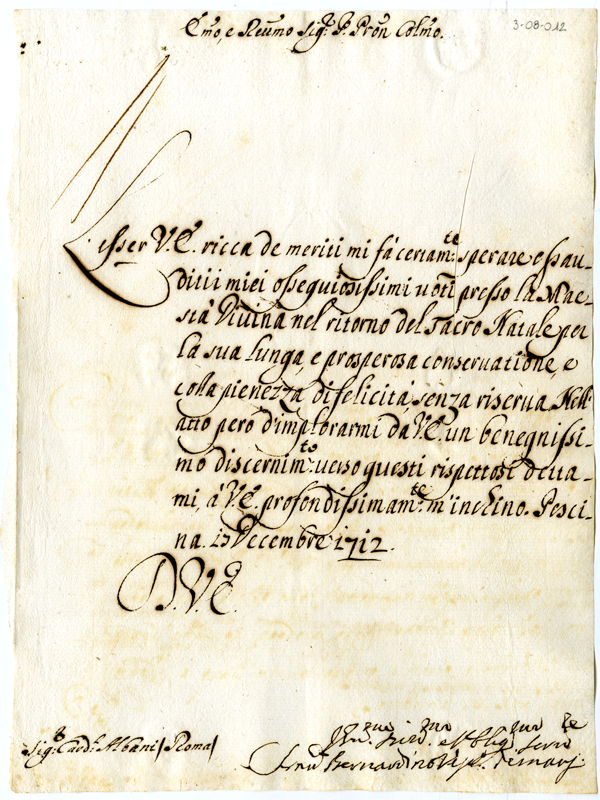 3-08-012
Em̃o, e Reu͞mo Sig.r P. Pron Colmo.
L'esser V. E. ricca de meriti mi fà certam.te sperare essau-
diti i miei ossequiosissimi uoti presso la Mae-
stà Diuina nel ritorno del Sacro Natale per
la sua lunga, e prosperosa conseruatione, e
colla pienezza di felicità, senza riserua. Nell'
atto però d'implorarmi da V. E. un benegnissi-
mo discernim.to uerso questi rispettosi detta-
mi, à V. E. profondissimam.te m'inchino. Pesci-
na. 13 Decembre 1712.
D. V. E.
Sig.r Card.l Albani / Roma /
oblig. Seru.re
Bernardino